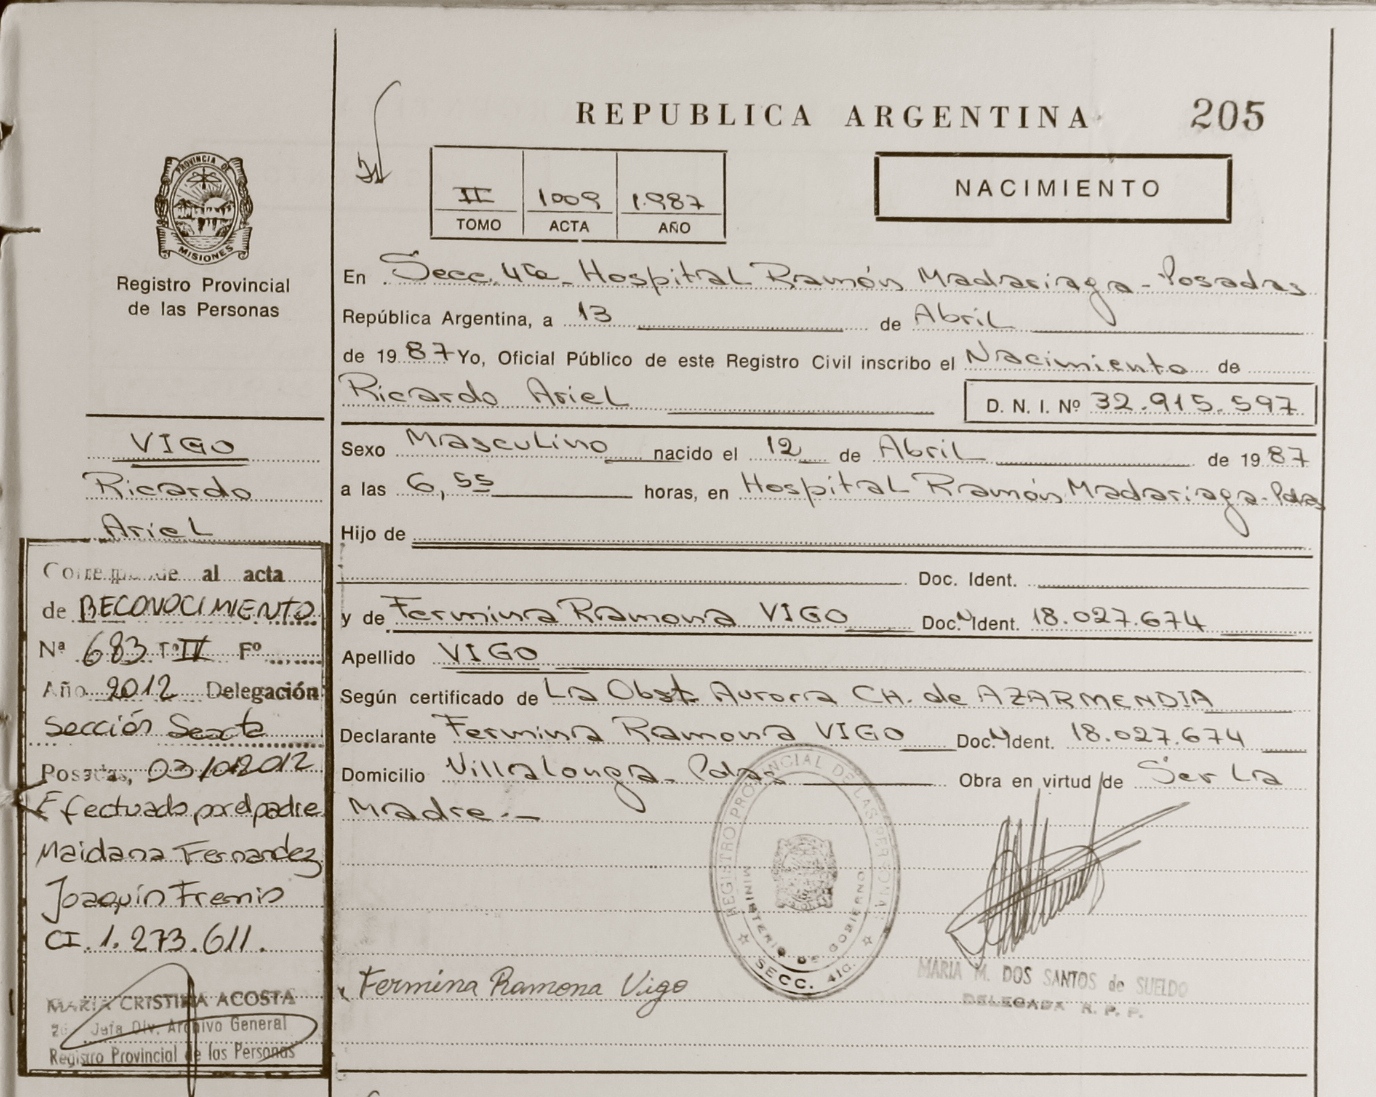 REPUBLICA ARGENTINA 205
II 1009 1.987
TOMO ACTA AÑO
NACIMIENTO
PROVINCIA DE
MISIONES
Registro Provincial
de las Personas
En Secc. 4ta. Hospital Ramón Madariaga - Posadas
República Argentina, a 13 de Abril
de 1987 Yo, Oficial Público de este Registro Civil inscribo el Nacimiento de
Ricardo Ariel D. N. I. Nº 32.915.597
Sexo Masculino nacido el 12 de Abril de 1987
a las 6,55 horas, en Hospital Ramón Madariaga - Pdas
Hijo de
Doc. Ident.
y de Fermina Ramona VIGO Doc. N Ident. 18.027.674
Apellido VIGO
Según certificado de La Obst. Aurora CH. de AZARMENDIA
Declarante Fermina Ramona VIGO Doc. N Ident. 18.027.674
Domicilio Villalonga - Pdas Obra en virtud de Ser La
Madre.-
Fermina Ramona Vigo
REGISTRO PROVINCIAL DE LAS PERSONAS
MINISTERIO DE GOBIERNO
SECC. 4ta.
MARIA M. DOS SANTOS de SUELDO
DELEGADA R. P. P.
VIGO
Ricardo
Ariel
Corresponde al acta
de RECONOCIMIENTO
Nª 683 Tº IV Fº
Año 2012 Delegación
Sección Sexta
Posadas,
Efectuado por el padre
Maidana Fernandez
Joaquín
CI. 1.273.611.
MARIA CRISTINA ACOSTA
Jefa Div. Archivo General
Registro Provincial de las Personas